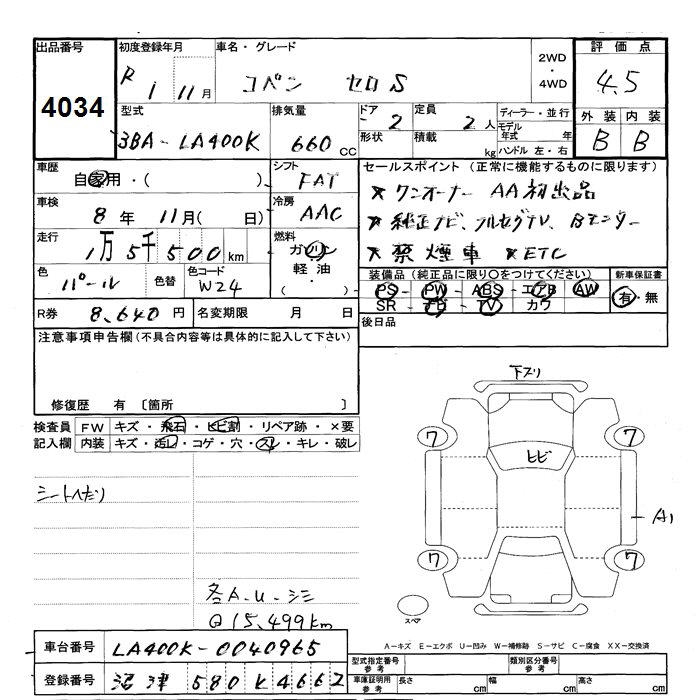 出品番号
4034
初度登録年月
R 1 11月
車名・グレード
コペン セロS
2WD
・
4WD
評価点
4.5
型式
3BA-LA400K
排気量
660 cc
ドア
2
形状
定員
2人
積載
kg
ディーラー・並行
モデル年式 年
ハンドル 左・右
外装 内装
B B
車歴
自家用・( )
シフト
FAT
セールスポイント (正常に機能するものに限ります)
車検
8年 11月( 日)
冷房
AAC
★ワンオーナー AA初出品
★純正ナビ、フルセグTV、Bモニター
★禁煙車 ★ETC
走行
1万5千500km
燃料
ガソリン
・
軽油
・
( )
色
パール
色替
色コード
W24
装備品(純正品に限り○をつけてください)
PS・PW・ABS・エアB AW
SR・ナビ・TV カワ
新車保証書
有・無
R券 8,640円
名変期限 月 日
後日品
注意事項申告欄(不具合内容等は具体的に記入して下さい)
修復歴 有 〔箇所 〕
検査員
記入欄
FW キズ・飛石・ヒビ割・リペア跡・×要
内装 キズ・汚レ・コゲ・穴・スレ・キレ・破レ
シートヘタリ
各A・U・シミ
@15,499km
下スリ
7
7
ヒビ
A1
7
7
スペア
A-キズ E-エクボ U-凹み W-補修跡 S-サビ C-腐食 XX-交換済
車台番号 LA400K-0040965
登録番号 沼津 580 K 4662
型式指定番号
参考
類別区分番号
参考
車庫証明用
参考
長さ cm
幅 cm
高さ cm